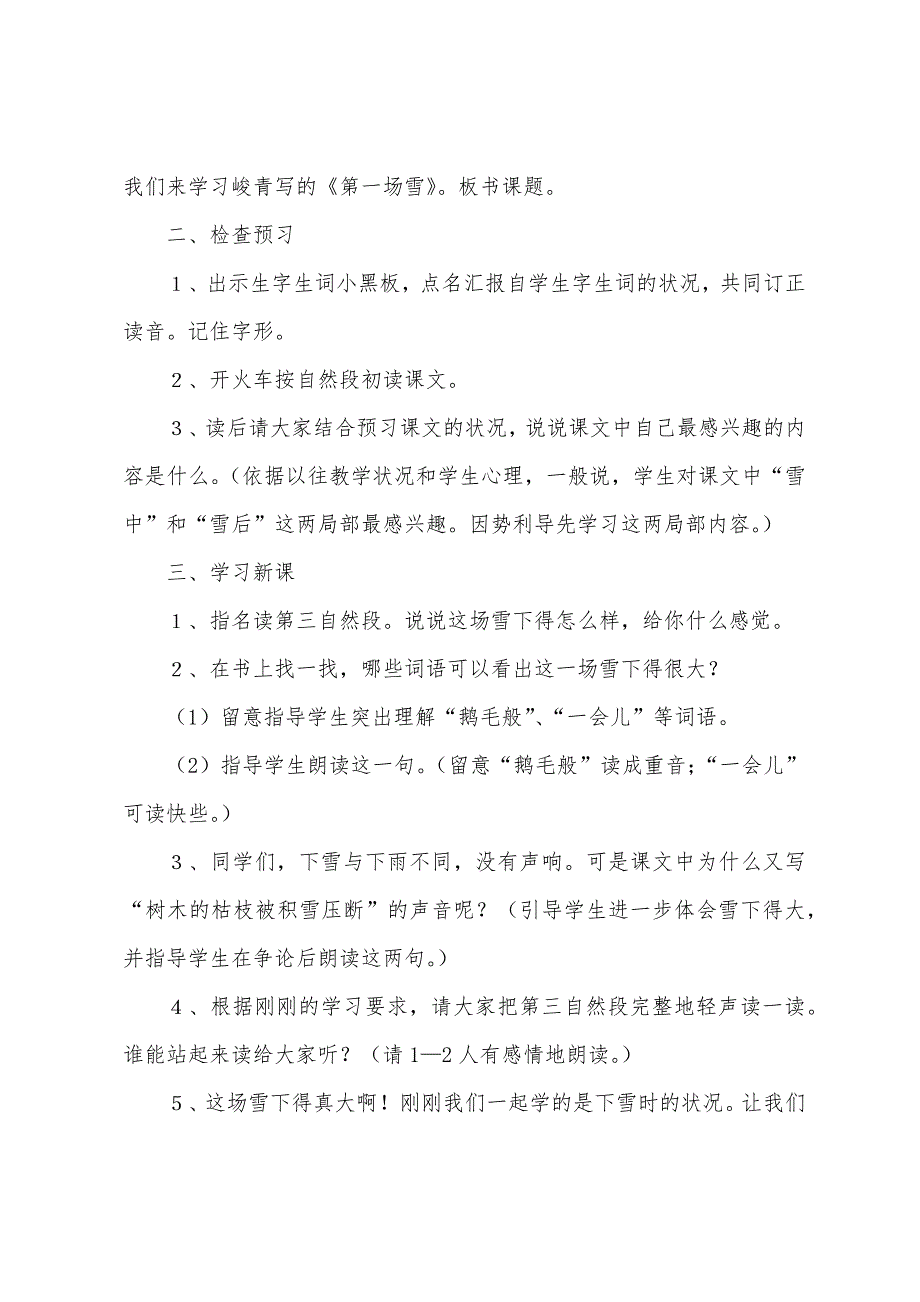 我们来学习峻青写的《第一场雪》。板书课题。
二、检查预习
１、出示生字生词小黑板，点名汇报自学生字生词的状况，共同订正
读音。记住字形。
２、开火车按自然段初读课文。
３、读后请大家结合预习课文的状况，说说课文中自己最感兴趣的内
容是什么。（依据以往教学状况和学生心理，一般说，学生对课文中“雪
中”和“雪后”这两局部最感兴趣。因势利导先学习这两局部内容。）
三、学习新课
１、指名读第三自然段。说说这场雪下得怎么样，给你什么感觉。
２、在书上找一找，哪些词语可以看出这一场雪下得很大？
（1）留意指导学生突出理解“鹅毛般”、“一会儿”等词语。
（2）指导学生朗读这一句。（留意“鹅毛般”读成重音；“一会儿”
可读快些。）
３、同学们，下雪与下雨不同，没有声响。可是课文中为什么又写
“树木的枯枝被积雪压断”的声音呢？（引导学生进一步体会雪下得大，
并指导学生在争论后朗读这两句。）
４、根据刚刚的学习要求，请大家把第三自然段完整地轻声读一读。
谁能站起来读给大家听？（请 1—2 人有感情地朗读。）
５、这场雪下得真大啊！刚刚我们一起学的是下雪时的状况。让我们